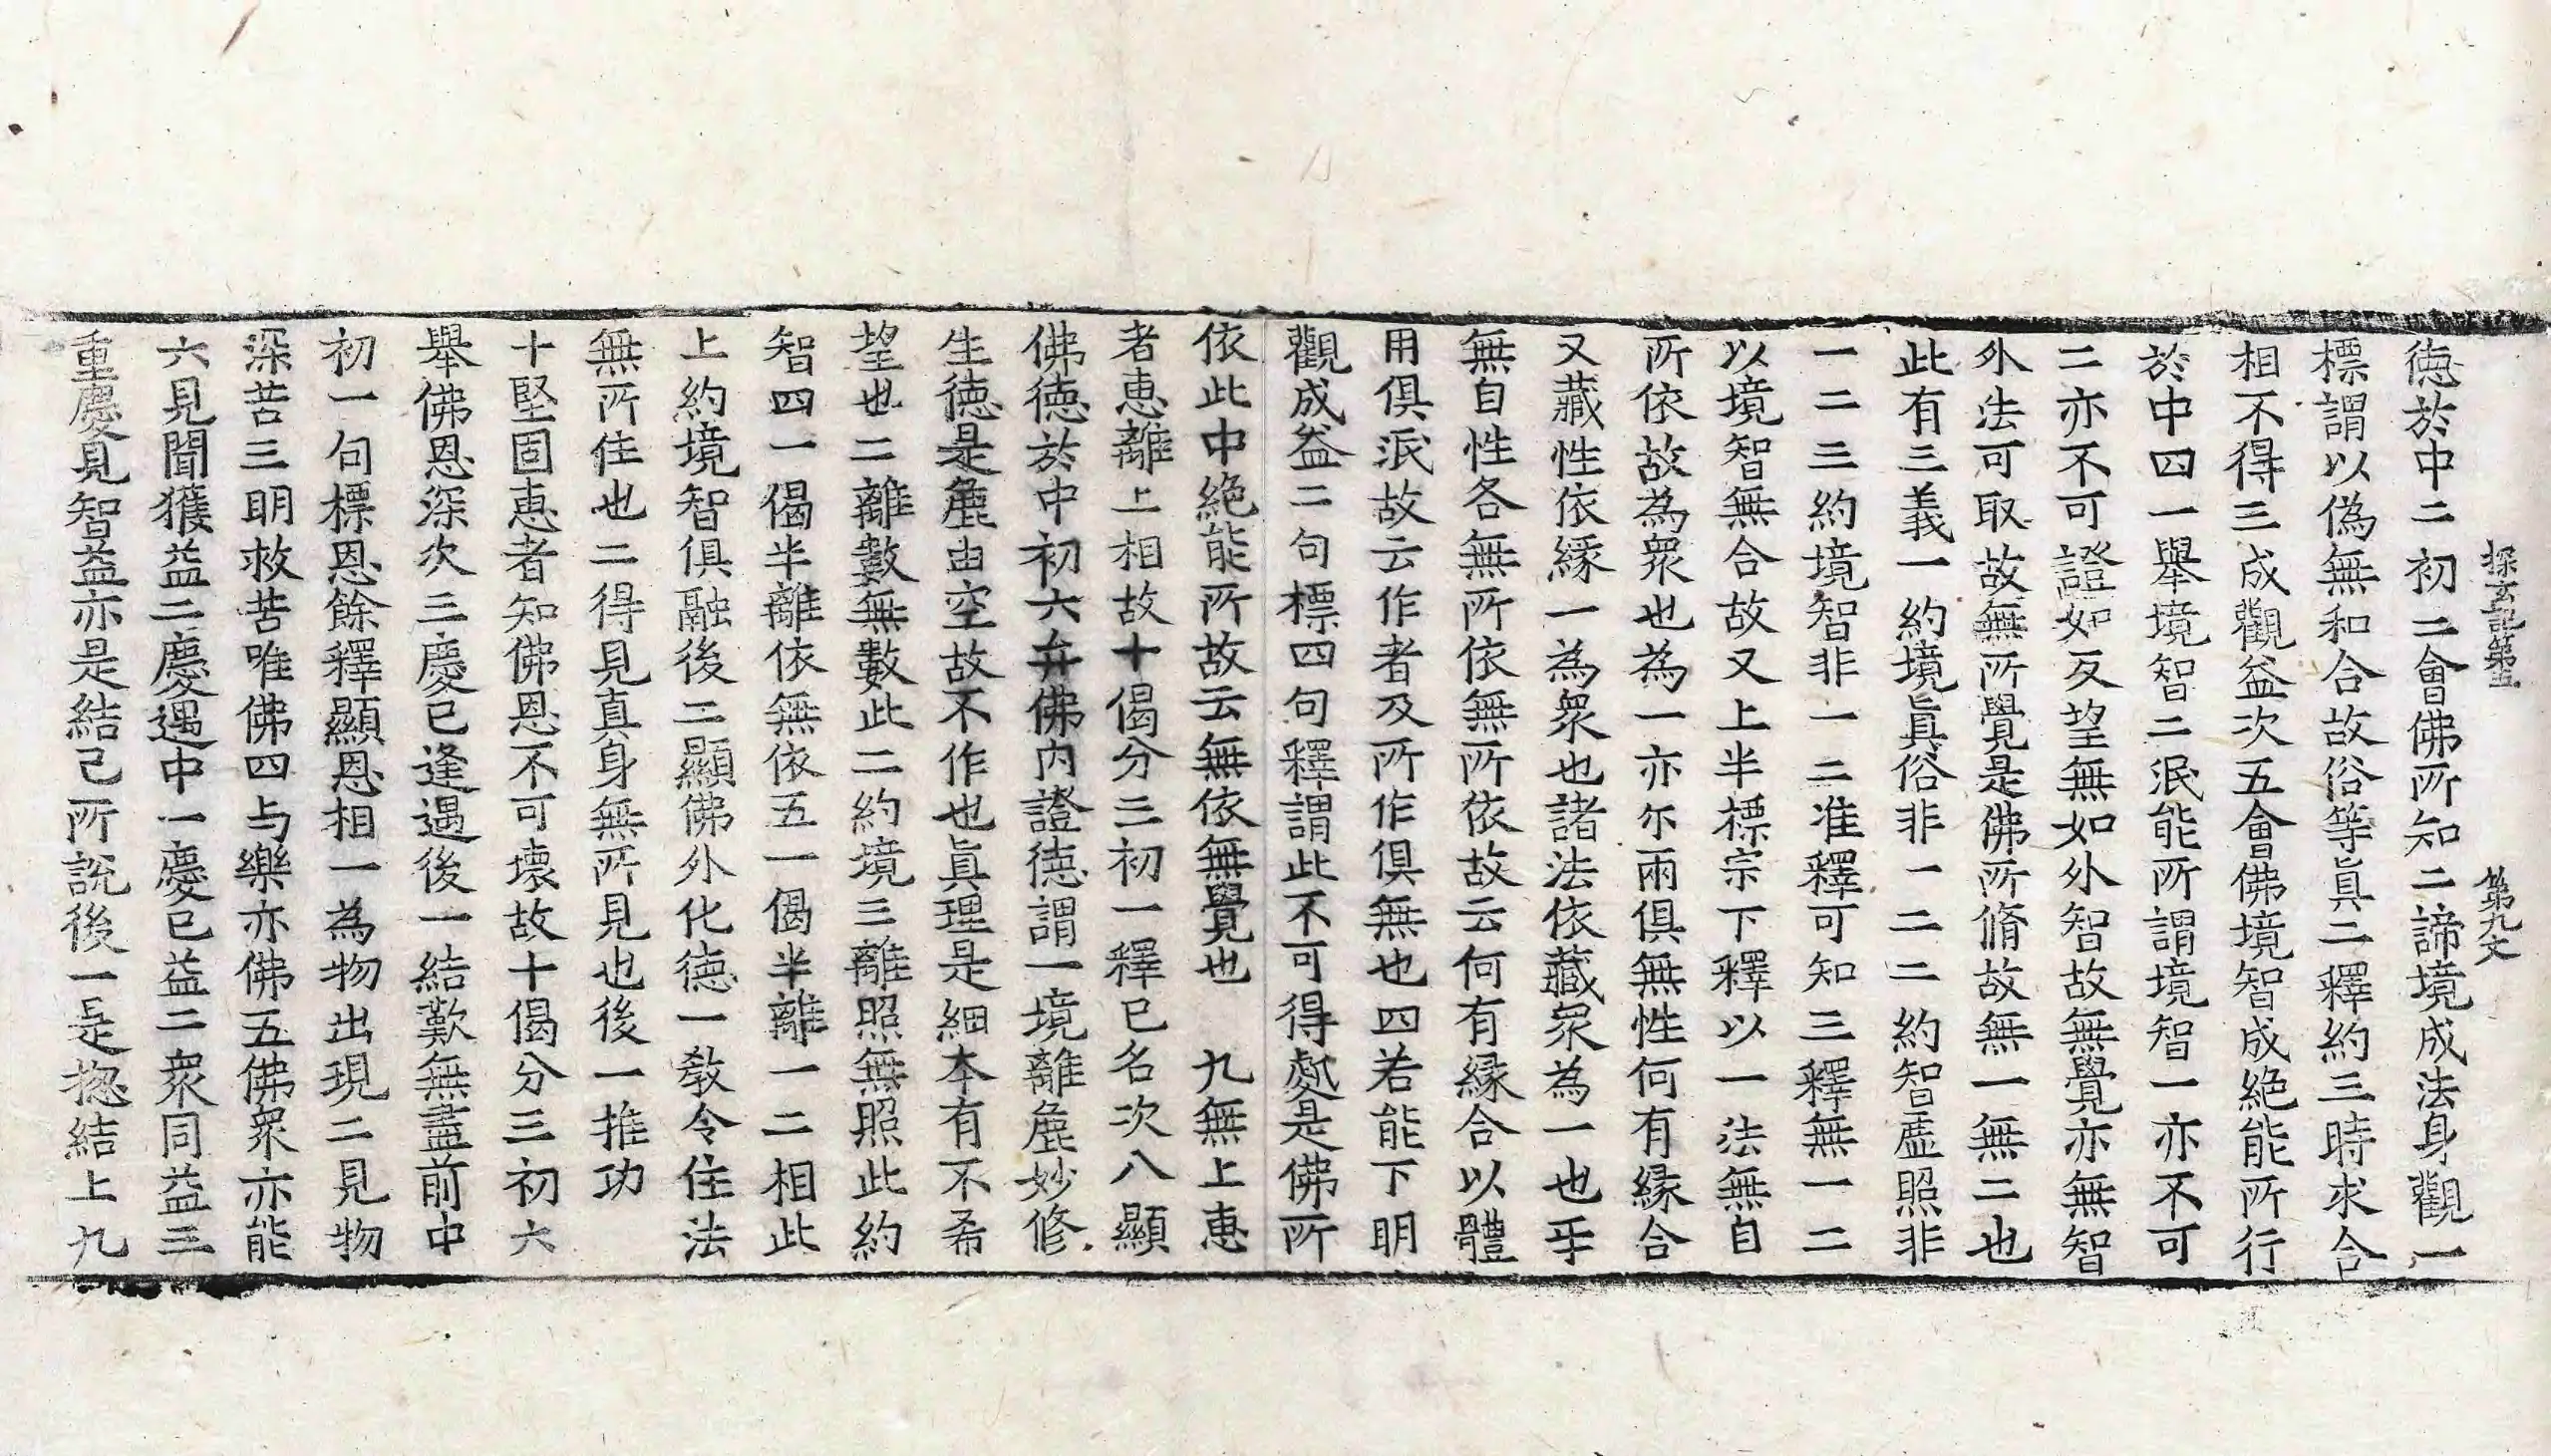 探玄記第五　第九丈
德於中二初二會佛所知二諦境成法身觀一
標謂以偽無和合故俗等眞二釋約三時求合
相不得三成觀益次五會佛境智成絶能所行
於中四一舉境智二泯能所謂境智一亦不可
二亦不可證如反望無如外智故無覺亦無智
外法可取故無所覺是佛所脩故無一無二也
此有三義一約境眞俗非一二二約智虛照非
一二三約境智非一二准釋可知三釋無一二
以境智無合故又上半標宗下釋以一法無自
所依故為衆也為一亦尒兩俱無性何有縁合
又藏性依縁一為衆也諸法依藏衆為一也乎
無自性各無所依無所依故云何有縁合以體
用俱泯故云作者及所作俱無也四若能下明
觀成益二句標四句釋謂此不可得處是佛所
依此中絶能所故云無依無覺也　九無上恵
者恵離上相故十偈分三初一釋已名次八顯
佛德於中初六弁佛内證德謂一境離麁妙修
生德是麁由空故不作也眞理是細本有不希
望也二離數無數此二約境三離照無照此約
智四一偈半離依無依五一偈半離一二相此
上約境智俱融後二顯佛外化德一教令住法
無所住也二得見真身無所見也後一推功
十堅固恵者知佛恩不可壊故十偈分三初六
舉佛恩深次三慶已逢遇後一結歎無盡前中
初一句標恩餘釋顯恩相一為物出現二見物
深苦三明救苦唯佛四与樂亦佛五佛衆亦能
六見聞獲益二慶遇中一慶已益二衆同益三
重慶見智益亦是結己所說後一是揔結上九